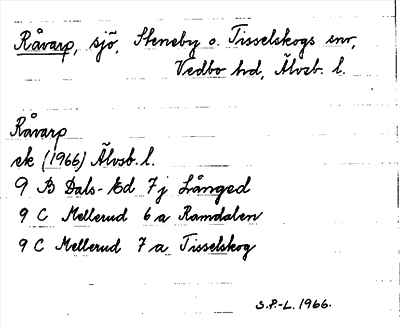 Råvarp, sjö, Steneby o. Tisselskogs snr,
Vedbo hd, Älvsb. l.
Råvarp
ek (1966) Älvsb. l.
9 B Dals-Ed 7 j Långed
9 C Mellerud 6 a Ramdalen
9 C Mellerud 7 a Tisselskog
S.P.-L. 1966.